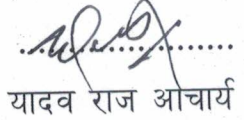 यादव राज ओचार्य